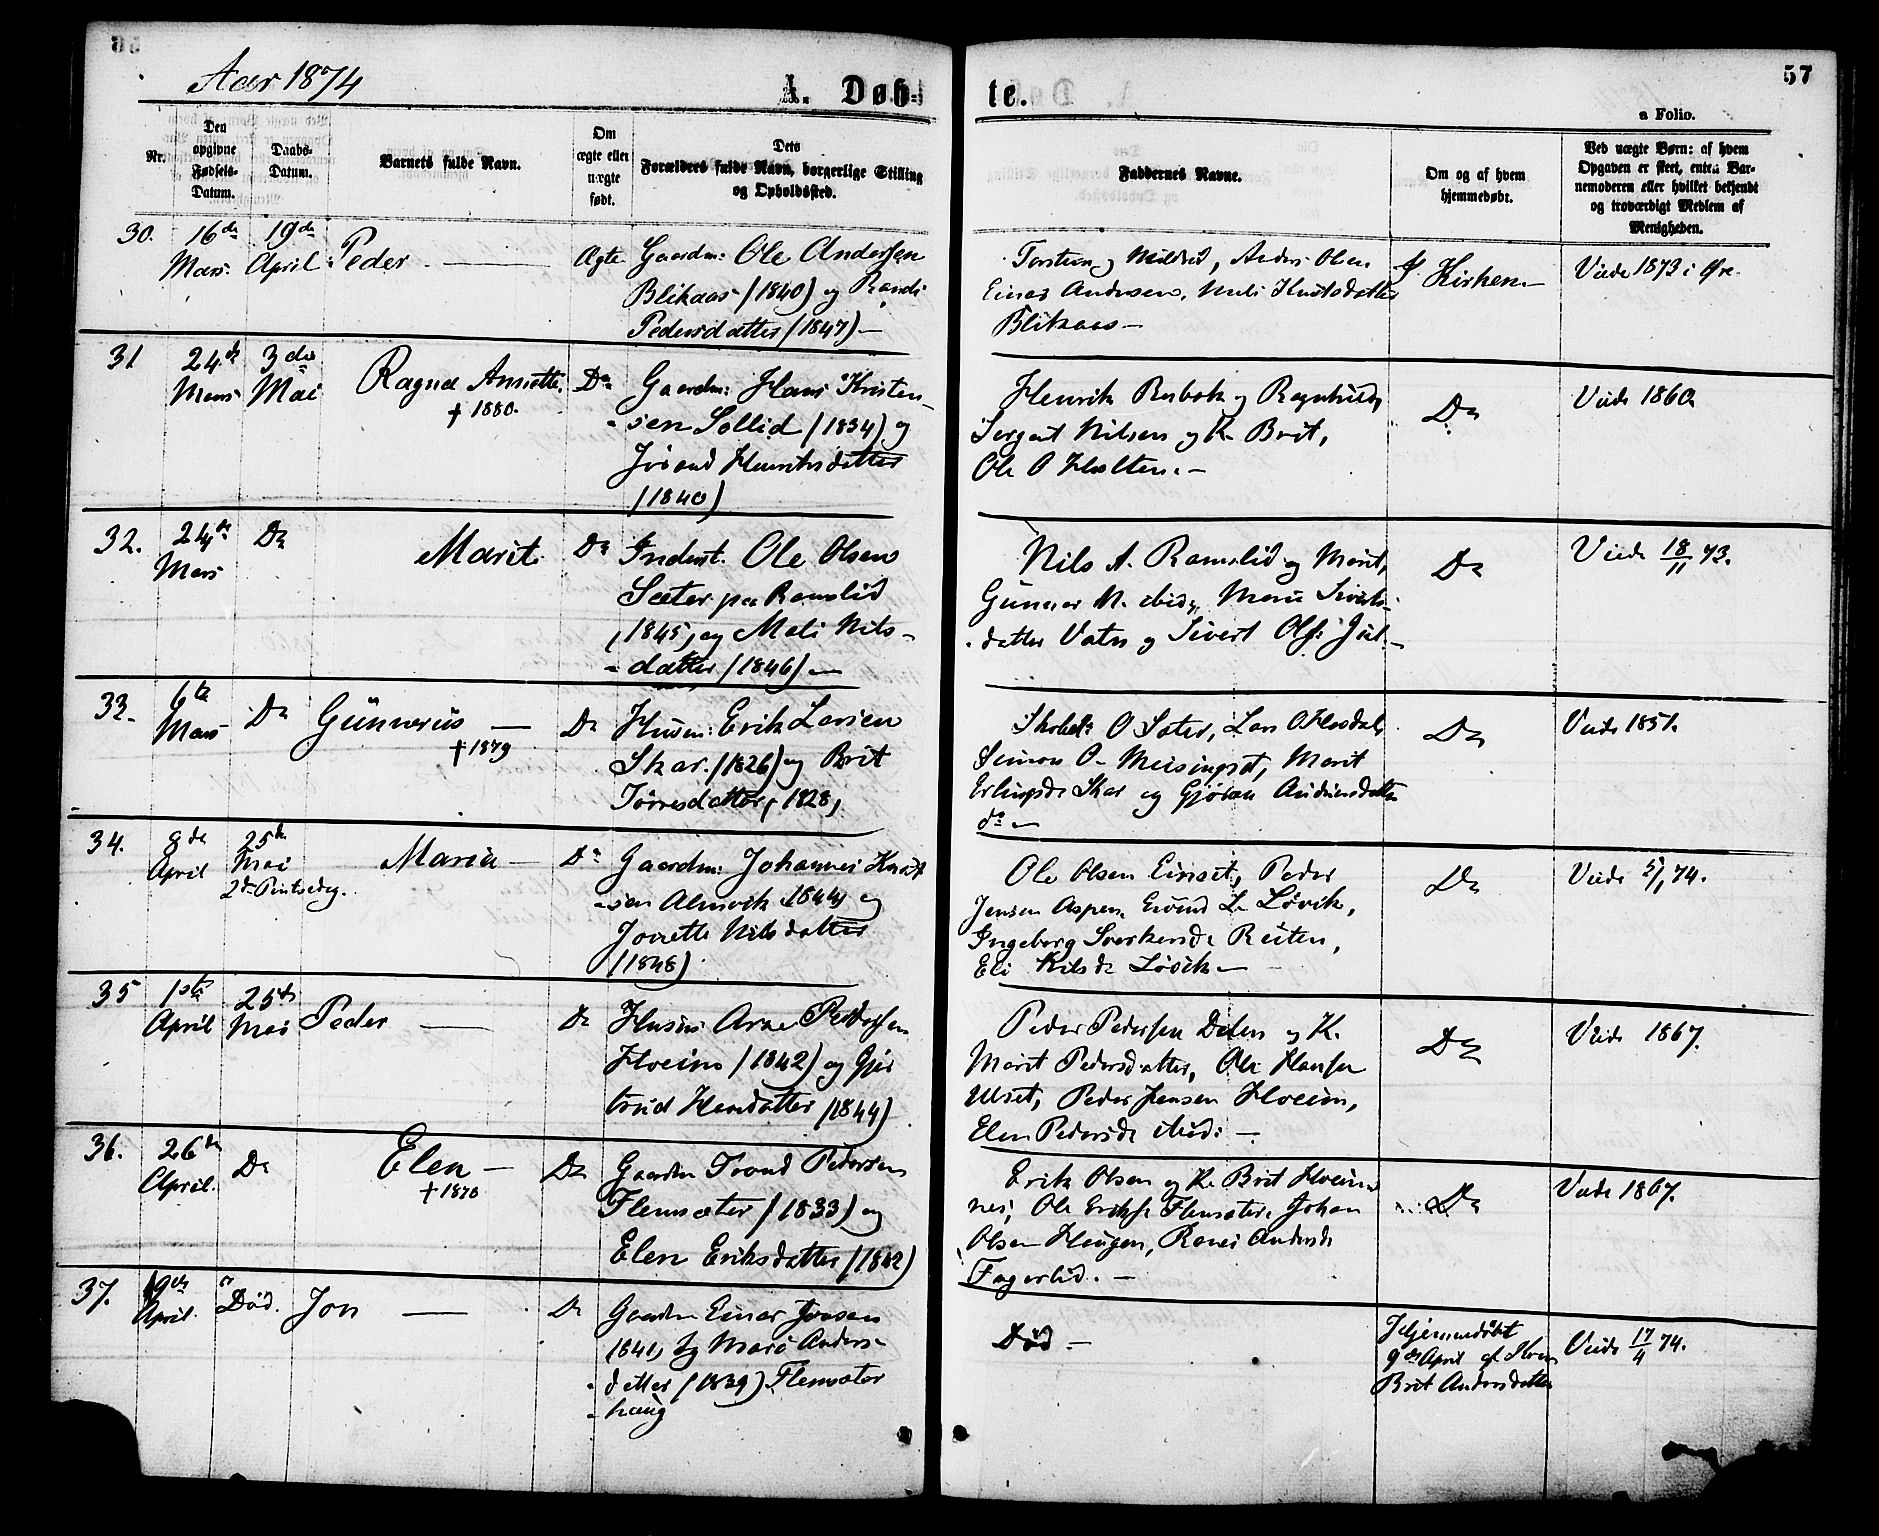 Aar 1874
A. Døb-
te.
57
a Folio.
Nr.
Den
opgivne
Fødsels-
Datum.
Daabs-
Datum.
Barnets fulde Navn.
Om
ægte eller
uægte
født.
Dets
Forældres fulde Navn, borgerlige Stilling
og Opholdssted.
Faddernes Navne.
Om og af hvem
hjemmedøbt.
Ved uægte Børn: af hvem
Opgaven er skeet, enten Bar-
nemoderen eller hvilket bekjendt
og troværdigt Medlem af
Menigheden.
30.
16de
Mars
19de
April
Peder
Ægte
Gaardm: Ole Anderssen
Blikaas (1840) og Randi
Pedersdatter (1847) -
Anders Olsen
Einar Andersen,
Blikaas -
I Kirken -
Viede 1873 i Øre
31
24de
Mars
3die
Mai
Ragna Annette
† 1880.
Do
Gaardm: Hans Kristen-
sen Sollid (1834) og
Henriksdatter
(1840)
Henrik og Ragnhild,
Sergent Nilsen og K. Brit,
Ole O Holten. -
Do
Viede 1860
32.
24de
Mars
Do
Marit
Do
Inderst. Ole Olsen
Sæter paa Ramslid
(1845) og Mali Nils-
datter (1846) -
Nils A. Ramslid og Marit,
Gunnar N. ibid,
datter Vatn og Sivert
Do
Viede 18/11 73.
33.
6te
Mars
Do
Gunnerius -
† 1879
Do
Husm: Erik Larsen
Skar. (1826) og Brit
Tørresdatter (1828)
O Sæter, Lars
Simon O. Meisingset, Marit
Erlingsdr Skar og
do -
Do
Viede 1851.
34.
8de
April
25de
Mai
2den Pintsedag.
Maria -
Do
Gaardm: Johannes Knut-
sen Almvik (1844) og
Jonette Nilsdatter
(1848)
Ole Olsen Einset, Peder
Jensen Aspen, Eivind L. Løvik,
Ingeborg Sverkersdr Reiten,
Eli Nilsdr Løvik -
Do
Viede 5/1 74.
35
1ste
April
25de
Mai
Peder
Do
Husm: Arne Pederssen
Hoeim (1842) og Gjer
trud datter (1844)
Peder Pedersen Dalen og K.
Marit Pedersdatter, Ole Hansen
Ulset, Peder Jensen Hoeim,
Elen Pedersdr ibid: -
Do
Viede 1867.
36.
26de
April.
Do
Elen -
Do
Gaardm Trond Pedersen
Flemsæter (1833) og
Elen Eriksdatter (1842)
Erik Olsen og K. Brit Hoeim
nes, Ole Eriks. Flemsæter, Johan
Olsen Haugen, Andersdr
Fagerlid. -
Do
Viede 1867.
37.
9de
April.
Død.
Jon
Do
Gaardm Einar Jonsen
(1841) og Andersdatter (1839) Flemsæter
haug
Død -
Hjemmedøbt
9de April af
Brit Andersdatter
Viede 17/4 74.